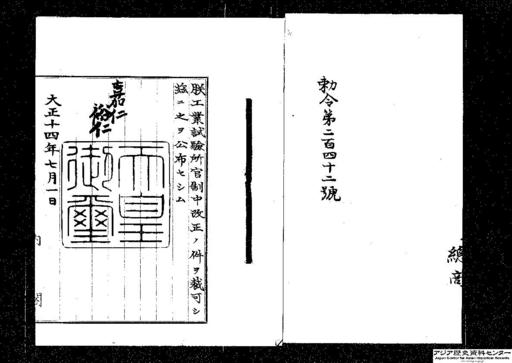 勅令第二百四十二號
總
商
朕工業試驗所官制中改正ノ件ヲ裁可シ
玆ニ之ヲ公布セシム
嘉仁
裕仁
天皇
御璽
大正十四年七月一日
内
閣
アジア歴史資料センター
Japan Center for Asian Historical Records